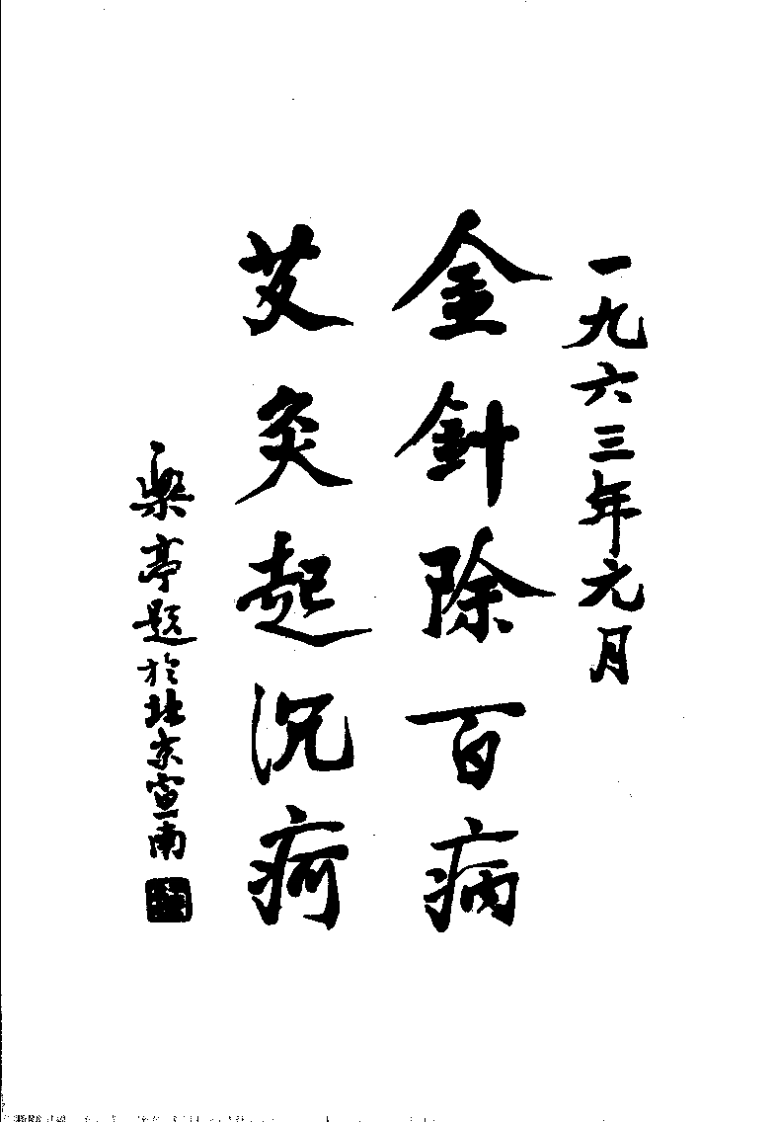 一九六三年元月
金針除百病
艾灸起沉疴
樂亭題於北京宣南